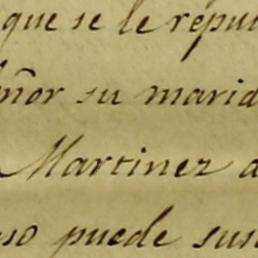 que se le repu
ñor su marid
Martinez d
so puede sus